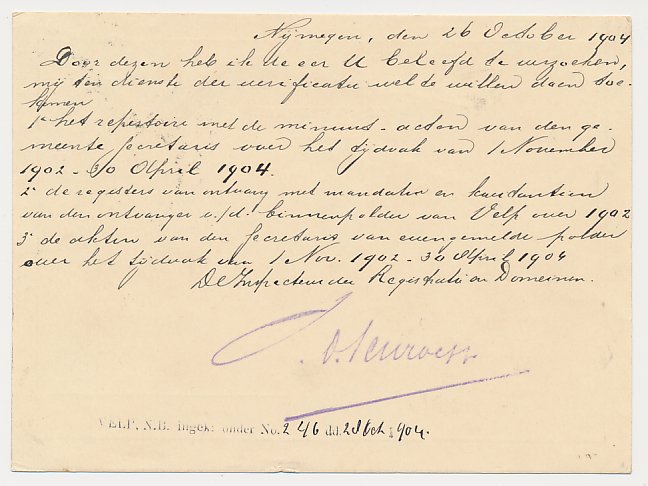 Nijmegen, den 26 October 1904
Door dezen heb ik de eer U beleefd te verzoeken,
mij ten dienste der verificatie wel te willen doen toe-
komen
1e het repertoire met de minuut-acten van den ge-
meente secretaris over het tijdvak van 1 November
1902 - 30 April 1904.
2e de registers van ontvang met mandaten en kwitantien
van den ontvanger v./d. binnenpolder van Velp over 1902
3e de akten van den Secretaris van evengemelde polder
over het tijdvak van 1 Nov. 1902 - 30 April 1904
De Inspecteur der Registratie en Domeinen.
VELP, N.B. ingek. onder No. 246 dd. 28 Oct 1904.